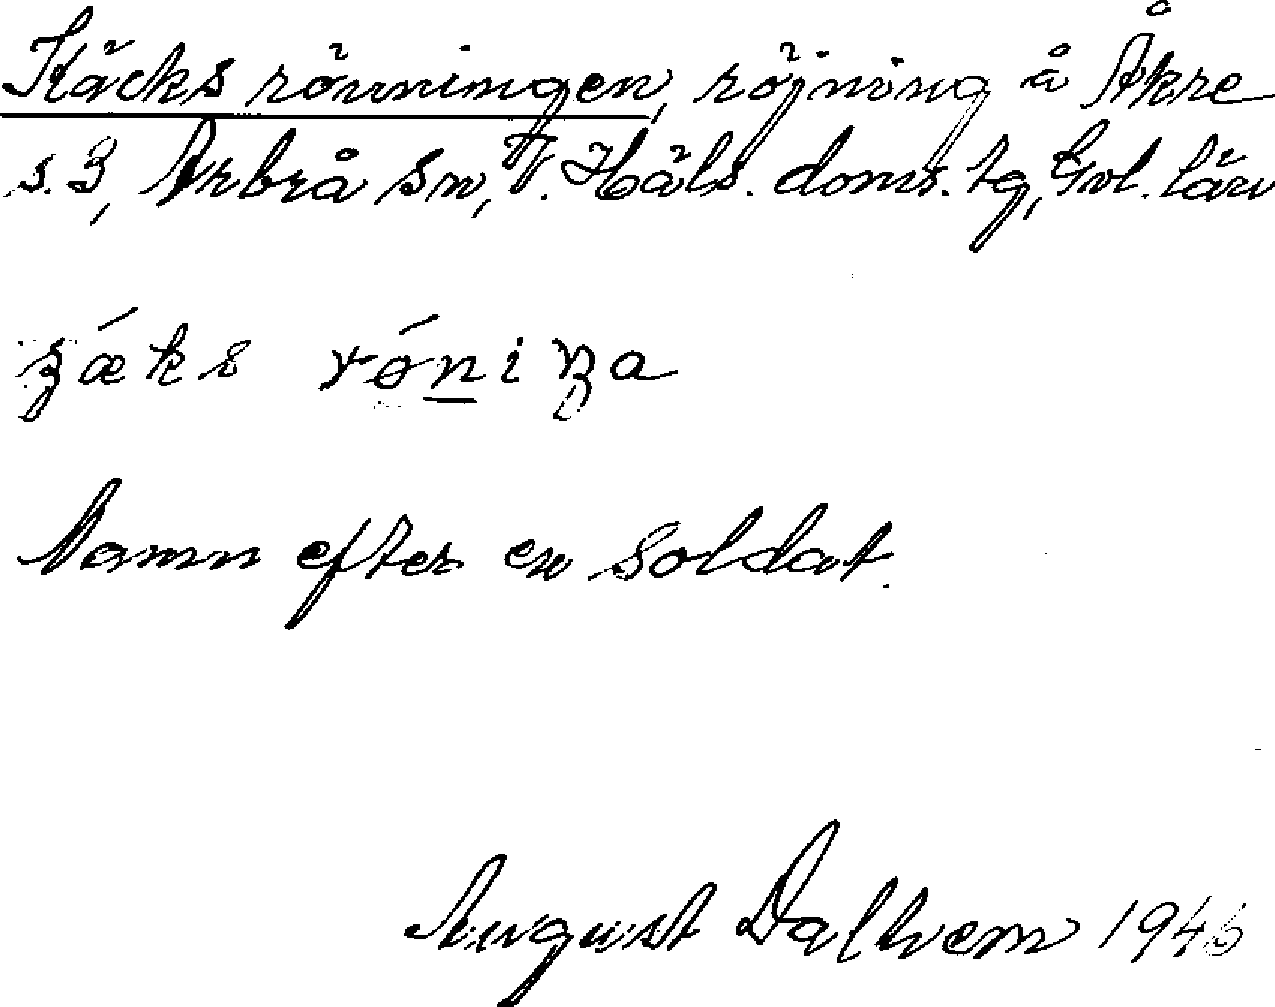 Käcks rönningen, röjning å Åkre
s. 3, Arbrå sn, V. Häls. doms. tg, Gvl. län
ʂǽks rǿniŋa
Namn efter en soldat.
August Dalhem 1946